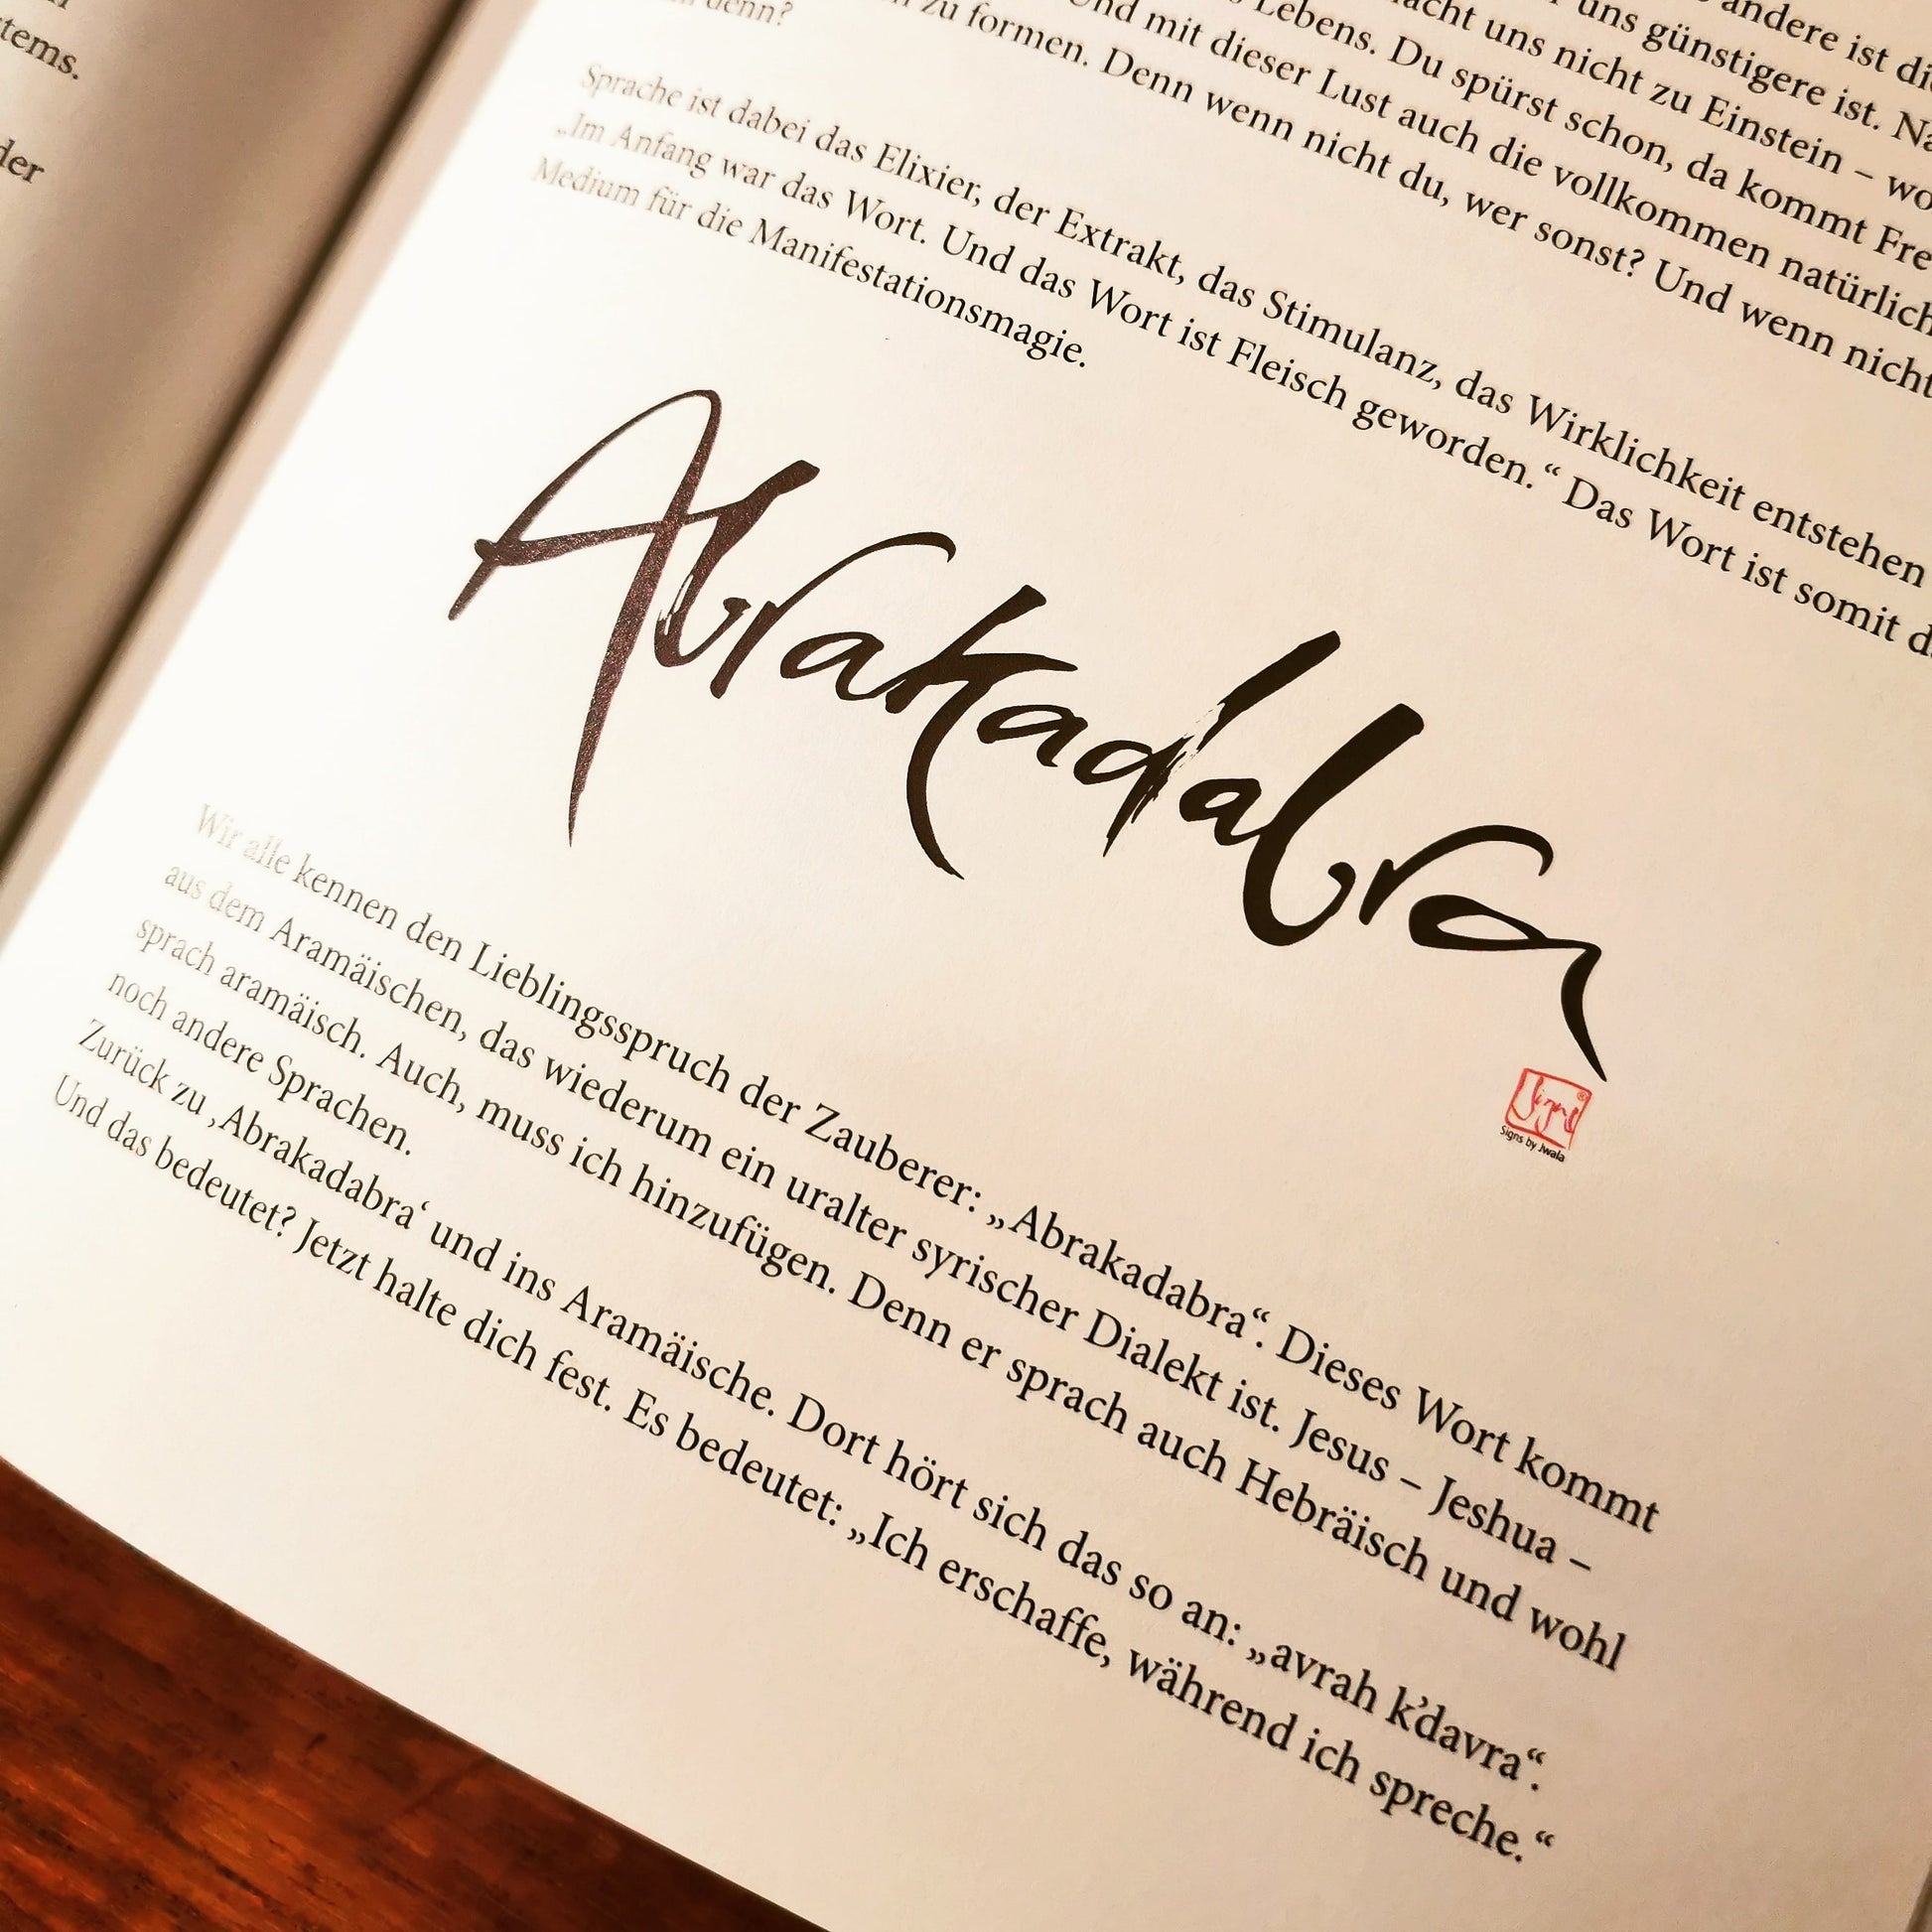 tems.
der
andere ist die
uns günstigere ist. Na
acht uns nicht zu Einstein – wo
Lebens. Du spürst schon, da kommt Fre
Und mit dieser Lust auch die vollkommen natürlich
zu formen. Denn wenn nicht du, wer sonst? Und wenn nicht
denn?
Sprache ist dabei das Elixier, der Extrakt, das Stimulanz, das Wirklichkeit entstehen
„Im Anfang war das Wort. Und das Wort ist Fleisch geworden.“ Das Wort ist somit d
Medium für die Manifestationsmagie.
Abrakadabra
Signs
Signs by Jwala
Wir alle kennen den Lieblingsspruch der Zauberer: „Abrakadabra“. Dieses Wort kommt
aus dem Aramäischen, das wiederum ein uralter syrischer Dialekt ist. Jesus – Jeshua –
sprach aramäisch. Auch, muss ich hinzufügen. Denn er sprach auch Hebräisch und wohl
noch andere Sprachen.
Zurück zu ‚Abrakadabra‘ und ins Aramäische. Dort hört sich das so an: „avrah k’davra“.
Und das bedeutet? Jetzt halte dich fest. Es bedeutet: „Ich erschaffe, während ich spreche.“